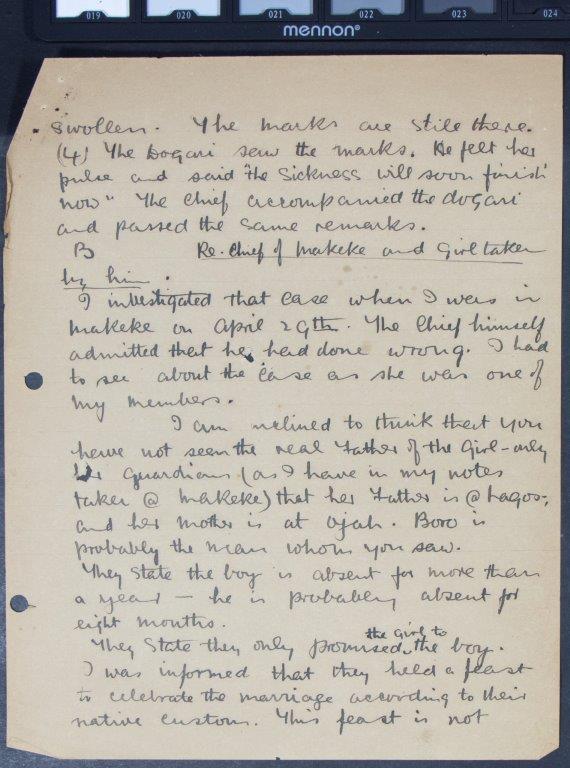 019 020 021 022 023 024
mennon®
swollen. The marks are still there.
(4) The Dogari saw the marks. He felt her
pulse and said "the sickness will soon finish
now" The Chief accompanied the dogari
and passed the same remarks.
B Re. Chief of Makeke and Girl taken
by him.
I investigated that case when I was in
Makeke on April 29th. The Chief himself
admitted that he had done wrong. I had
to see about the case as she was one of
my members.
I am inclined to think that you
have not seen the real Father of the Girl - only
her guardians (as I have in my notes
taken @ Makeke) that her Father is @ Lagos,
and her mother is at Ojah. Boro is
probably the man whom you saw.
They state the boy is absent for more than
a year - he is probably absent for
eight months.
They state they only promised the girl to the boy.
I was informed that they held a feast
to celebrate the marriage according to their
native custom. This feast is not